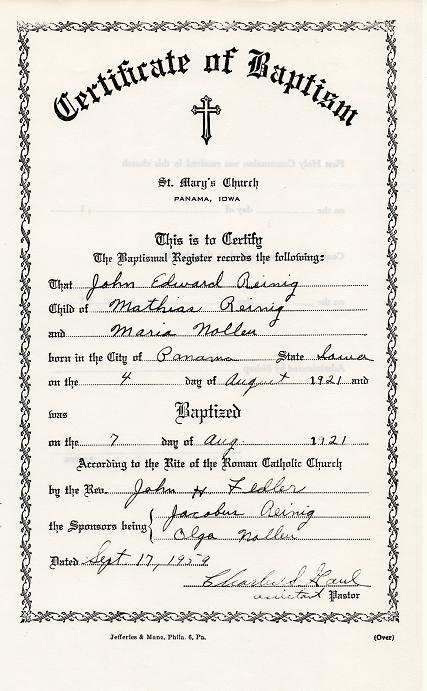 Certificate of Baptism
St. Mary's Church
PANAMA, IOWA
This is to Certify
The Baptismal Register records the following:
That John Edward Reinig
Child of Mathias Reinig
and Maria Nollen
born in the City of Panama State Iowa
on the 4 day of August 1921 and
was Baptized
on the 7 day of Aug. 1921
According to the Rite of the Roman Catholic Church
by the Rev. John H Fedler
the Sponsors being { Jacobus Reinig
Olga Nollen
Dated Sept 17, 1959
Charles S
assistant Pastor
Jefferies & Manz, Phila. 6, Pa. (Over)